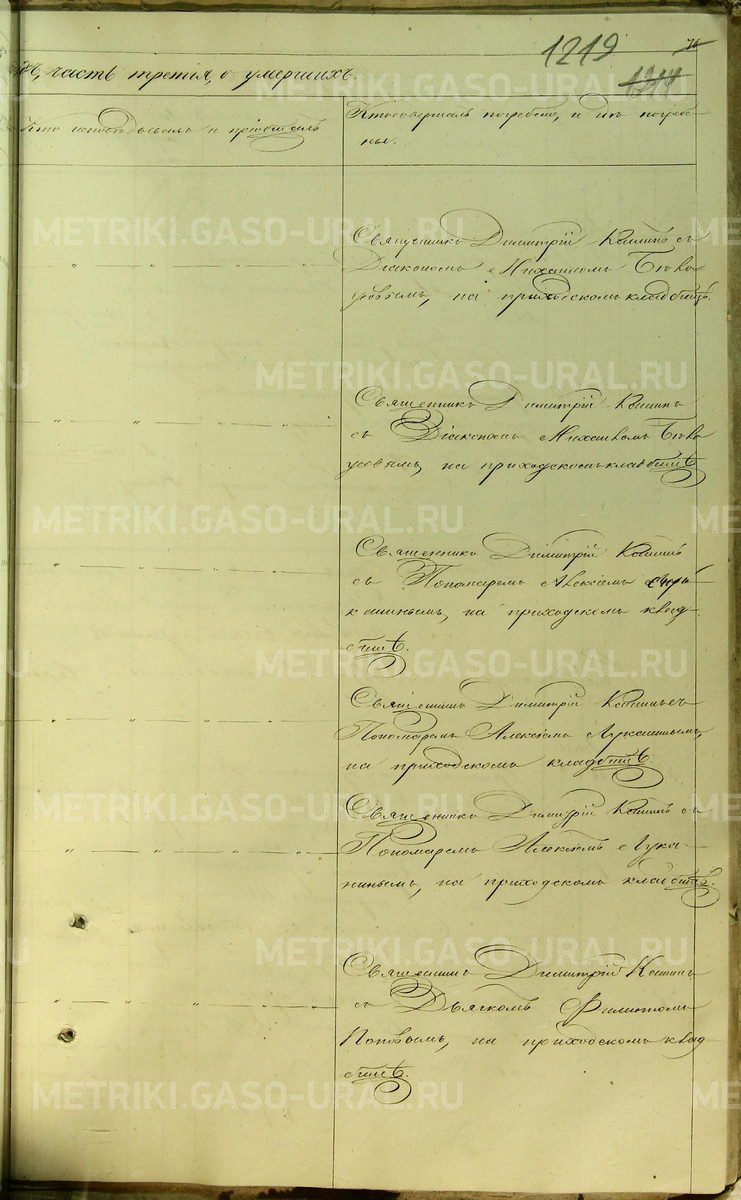 1219
71
1314
дъ, часть третія, о умершихъ.
Кто исповѣдывалъ и пріобщалъ
Кто совершалъ погребеніе, и гдѣ погребе-
ны.
Священникъ Димитрій Кашинъ съ
Діакономъ Михаиломъ Бѣло
усовымъ, на приходскомъ кладбищѣ.
Священникъ Димитрій Кашинъ
съ Діакономъ Михаиломъ Бѣло
усовымъ, на приходскомъ кладбищѣ
Священникъ Димитрій Кашинъ
съ Пономаремъ Алексіемъ
на приходскомъ клад-
бищѣ.
Священникъ Димитрій Кашинъ съ
Пономаремъ Алексіемъ Лукашинымъ,
на приходскомъ кладбищѣ.
Священникъ Димитрій Кашинъ съ
Пономаремъ Алексіемъ Лука-
шинымъ, на приходскомъ кладбищѣ.
Священникъ Димитрій Кашинъ
съ Дьячкомъ Филиппомъ
Поповымъ, на приходскомъ клад
бищѣ.
METRIKI.GASO-URAL.RU